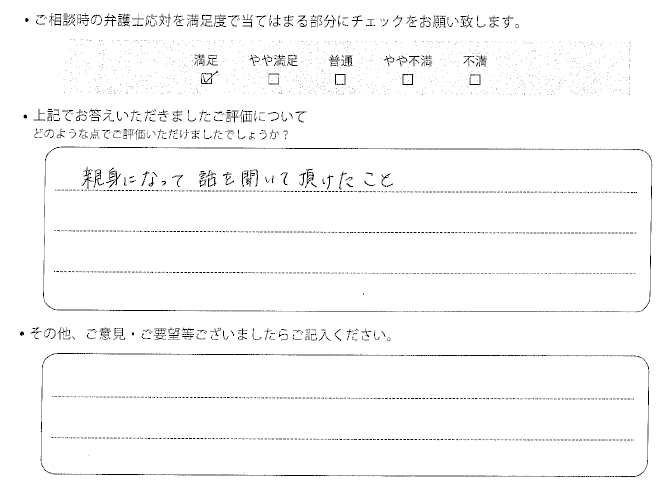 ・ご相談時の弁護士応対を満足度で当てはまる部分にチェックをお願い致します。
満足 やや満足 普通 やや不満 不満
☑ □ □ □ □
・上記でお答えいただきましたご評価について
どのような点でご評価いただけましたでしょうか？
親身になって 話を聞いて頂けたこと
・その他、ご意見・ご要望等ございましたらご記入ください。